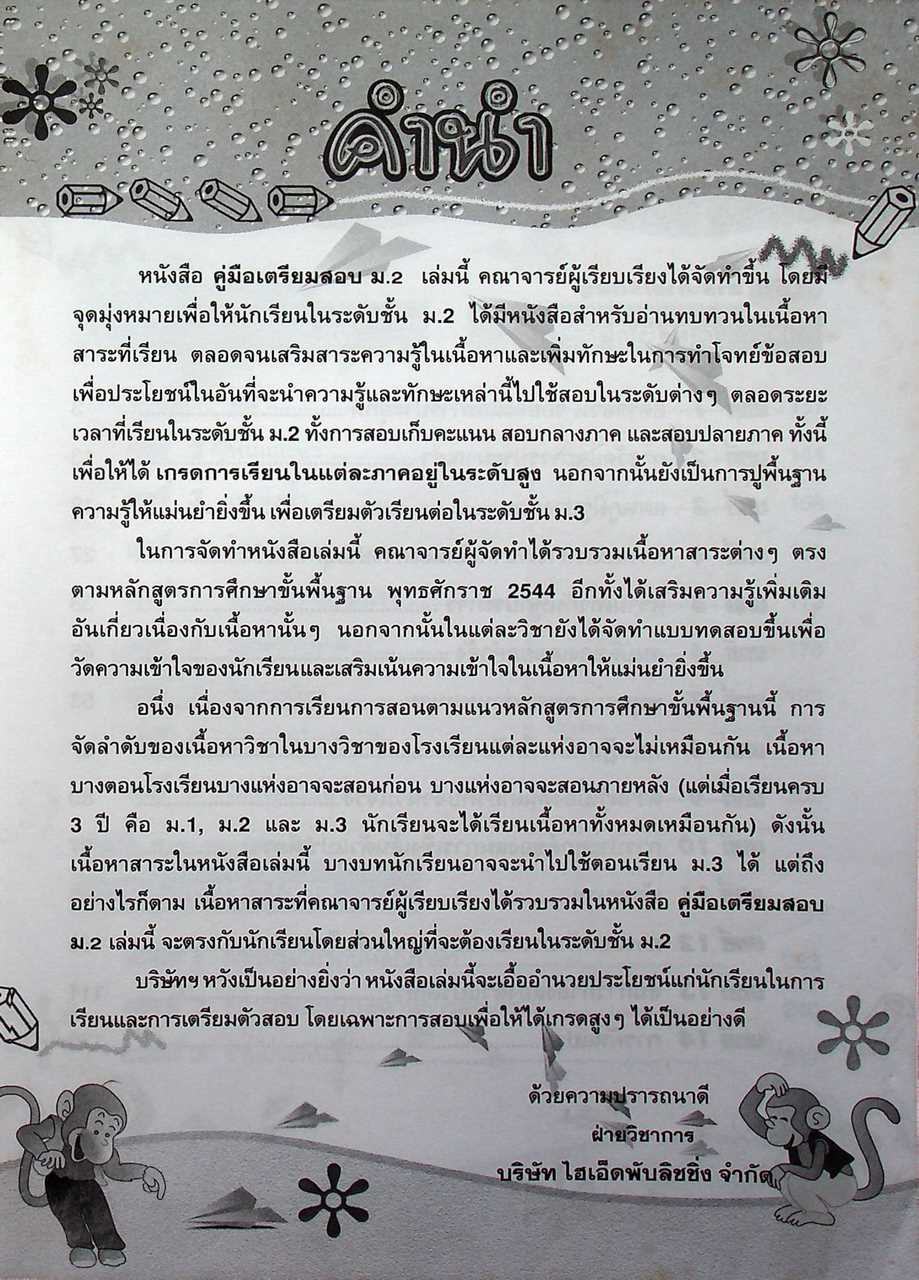 คำนำ
หนังสือ คู่มือเตรียมสอบ ม.2 เล่มนี้ คณาจารย์ผู้เรียบเรียงได้จัดทำขึ้น โดยมี
จุดมุ่งหมายเพื่อให้นักเรียนในระดับชั้น ม.2 ได้มีหนังสือสำหรับอ่านทบทวนในเนื้อหา
สาระที่เรียน ตลอดจนเสริมสาระความรู้ในเนื้อหาและเพิ่มทักษะในการทำโจทย์ข้อสอบ
เพื่อประโยชน์ในอันที่จะนำความรู้และทักษะเหล่านี้ไปใช้สอบในระดับต่างๆ ตลอดระยะ
เวลาที่เรียนในระดับชั้น ม.2 ทั้งการสอบเก็บคะแนน สอบกลางภาค และสอบปลายภาค ทั้งนี้
เพื่อให้ได้ เกรดการเรียนในแต่ละภาคอยู่ในระดับสูง นอกจากนั้นยังเป็นการปูพื้นฐาน
ความรู้ให้แม่นยำยิ่งขึ้น เพื่อเตรียมตัวเรียนต่อในระดับชั้น ม.3
ในการจัดทำหนังสือเล่มนี้ คณาจารย์ผู้จัดทำได้รวบรวมเนื้อหาสาระต่างๆ ตรง
ตามหลักสูตรการศึกษาขั้นพื้นฐาน พุทธศักราช 2544 อีกทั้งได้เสริมความรู้เพิ่มเติม
อันเกี่ยวเนื่องกับเนื้อหานั้นๆ นอกจากนั้นในแต่ละวิชายังได้จัดทำแบบทดสอบขึ้นเพื่อ
วัดความเข้าใจของนักเรียนและเสริมเน้นความเข้าใจในเนื้อหาให้แม่นยำยิ่งขึ้น
อนึ่ง เนื่องจากการเรียนการสอนตามแนวหลักสูตรการศึกษาขั้นพื้นฐานนี้ การ
จัดลำดับของเนื้อหาวิชาในบางวิชาของโรงเรียนแต่ละแห่งอาจจะไม่เหมือนกัน เนื้อหา
บางตอนโรงเรียนบางแห่งอาจจะสอนก่อน บางแห่งอาจจะสอนภายหลัง (แต่เมื่อเรียนครบ
3 ปี คือ ม.1, ม.2 และ ม.3 นักเรียนจะได้เรียนเนื้อหาทั้งหมดเหมือนกัน) ดังนั้น
เนื้อหาสาระในหนังสือเล่มนี้ บางบทนักเรียนอาจจะนำไปใช้ตอนเรียน ม.3 ได้ แต่ถึง
อย่างไรก็ตาม เนื้อหาสาระที่คณาจารย์ผู้เรียบเรียงได้รวบรวมในหนังสือ คู่มือเตรียมสอบ
ม.2 เล่มนี้ จะตรงกับนักเรียนโดยส่วนใหญ่ที่จะต้องเรียนในระดับชั้น ม.2
บริษัทฯ หวังเป็นอย่างยิ่งว่า หนังสือเล่มนี้จะเอื้ออำนวยประโยชน์แก่นักเรียนในการ
เรียนและการเตรียมตัวสอบ โดยเฉพาะการสอบเพื่อให้ได้เกรดสูงๆ ได้เป็นอย่างดี
ด้วยความปรารถนาดี
ฝ่ายวิชาการ
บริษัท ไฮเอ็ดพับลิชชิ่ง จำกัด